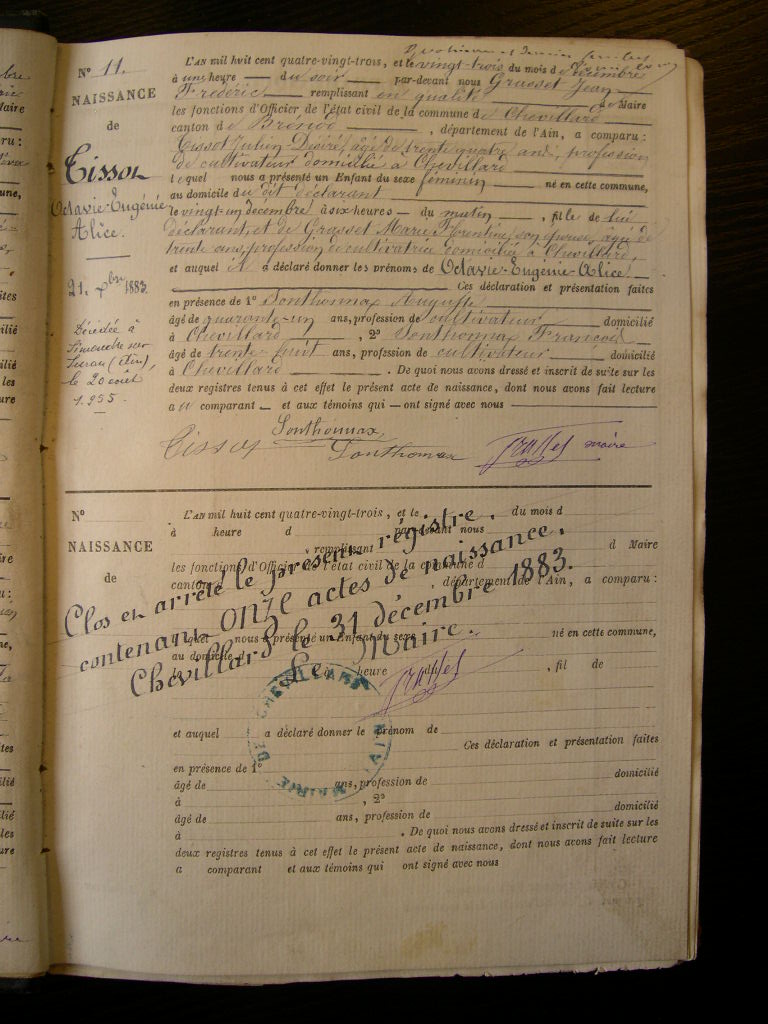 N° 11.
NAISSANCE
de
Tissot
Octavie-Eugénie
Alice.
21. Xbre 1883.
Décédée à
Simandre sur
Suran (Ain)
le 20 août
1.955.
L'AN mil huit cent quatre-vingt-trois, et le vingt-trois du mois de décembre
à une heure du soir par-devant nous Grasset Jean
Frédéric remplissant en qualité de Maire
les fonctions d'Officier de l'état civil de la commune de Chevillard
canton de Brénod, département de l'Ain, a comparu :
Tissot Julien-Désiré, âgé de trente quatre ans, profession
de cultivateur domicilié à Chevillard
lequel nous a présenté un Enfant du sexe féminin né en cette commune,
au domicile du dit déclarant
le vingt-un décembre à six heures du matin, fille de lui
déclarant, et de Grasset Marie Florentine, son épouse, âgée de
trente ans, profession de cultivatrice domiciliée à Chevillard,
et auquel il a déclaré donner les prénoms de Octavie-Eugénie-Alice.
Ces déclaration et présentation faites
en présence de 1° Sonthonnax Auguste
âgé de quarante-un ans, profession de cultivateur domicilié
à Chevillard, 2° Sonthonnax François
âgé de trente-huit ans, profession de cultivateur domicilié
à Chevillard. De quoi nous avons dressé et inscrit de suite sur les
deux registres tenus à cet effet le présent acte de naissance, dont nous avons fait lecture
au comparant et aux témoins qui ont signé avec nous
Tissot Sonthonnax
Sonthonnax Grasset maire
N°
NAISSANCE
de
L'AN mil huit cent quatre-vingt-trois, et le du mois d
à heure d par-devant nous
remplissant d Maire
les fonctions d'Officier de l'état civil de la commune d
canton d, département de l'Ain, a comparu :
Clos et arrêté le présent régistre.
contenant onze actes de naissance.
Chevillard le 31 décembre 1883.
Le Maire.
Grasset
lequel nous a présenté un Enfant du sexe né en cette commune,
au domicile d
le à heure du, fil de
MAIRIE DE CHEVILLARD (AIN)
et auquel a déclaré donner le prénom de
Ces déclaration et présentation faites
en présence de 1°
âgé de ans, profession de domicilié
à, 2°
âgé de ans, profession de domicilié
à. De quoi nous avons dressé et inscrit de suite sur les
deux registres tenus à cet effet le présent acte de naissance, dont nous avons fait lecture
a comparant et aux témoins qui ont signé avec nous